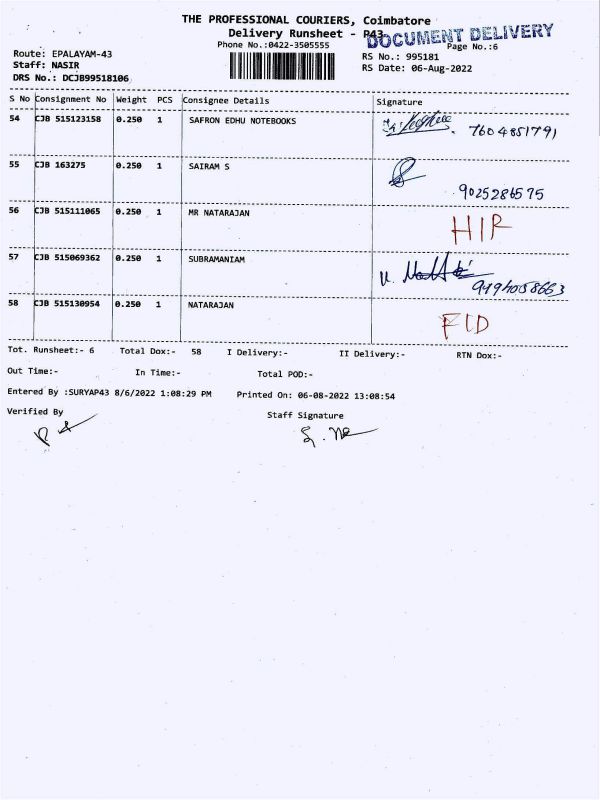 THE PROFESSIONAL COURIERS, Coimbatore
Delivery Runsheet - P43
DOCUMENT DELIVERY
Phone No.:0422-3505555
Page No.:6
Route: EPALAYAM-43
RS No.: 995181
Staff: NASIR
RS Date: 06-Aug-2022
DRS No.: DCJB99518106
S No Consignment No Weight PCS Consignee Details Signature
54 CJB 515123158 0.250 1 SAFRON EDHU NOTEBOOKS 7604851791
55 CJB 163275 0.250 1 SAIRAM S 9025286575
56 CJB 515111065 0.250 1 MR NATARAJAN HIR
57 CJB 515069362 0.250 1 SUBRAMANIAM
58 CJB 515130954 0.250 1 NATARAJAN FID
Tot. Runsheet:- 6 Total Dox:- 58 I Delivery:- II Delivery:- RTN Dox:-
Out Time:- In Time:- Total POD:-
Entered By :SURYAP43 8/6/2022 1:08:29 PM Printed On: 06-08-2022 13:08:54
Verified By Staff Signature